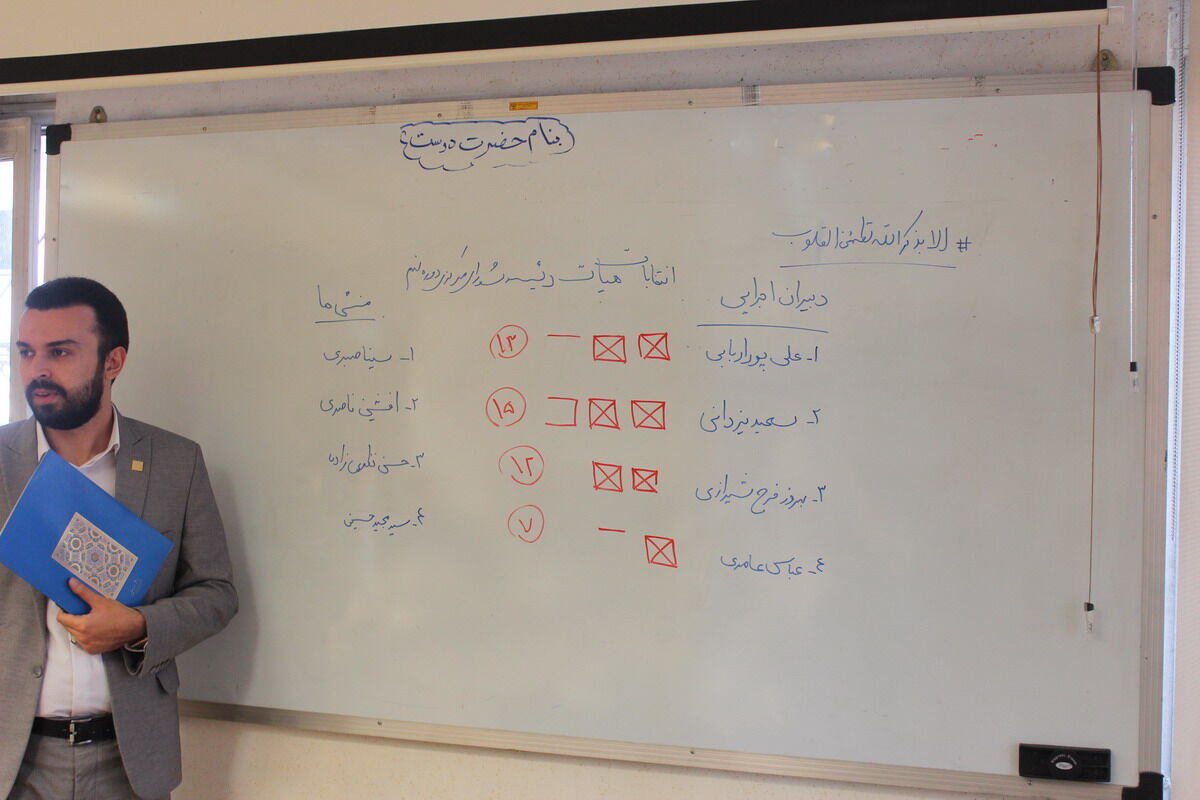 بنام حضرت دوست
# الا بذکر الله تطمئن القلوب
انتخابات هیات رئیسه شورای مرکزی دوره نهم
دبیران اجرایی
۱- علی پوراربابی
۱۳
۲- سعید یزدانی
۱۵
۳- بهروز فرح شیرازی
۱۲
۴- عباس عامدی
۷
منشی ها
۱- سینا صبری
۲- افشین ناصری
۳- حسین زاده
۴- سید مجید حسینی